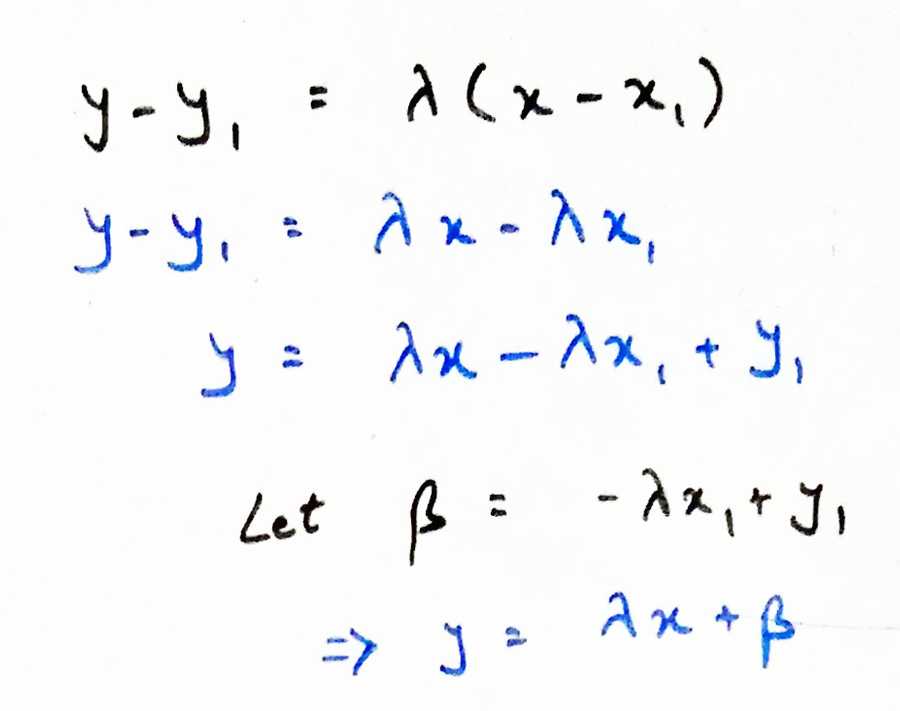 y - y₁ = λ(x - x₁)
y - y₁ = λx - λx₁
y = λx - λx₁ + y₁
Let β = -λx₁ + y₁
⇒ y = λx + β